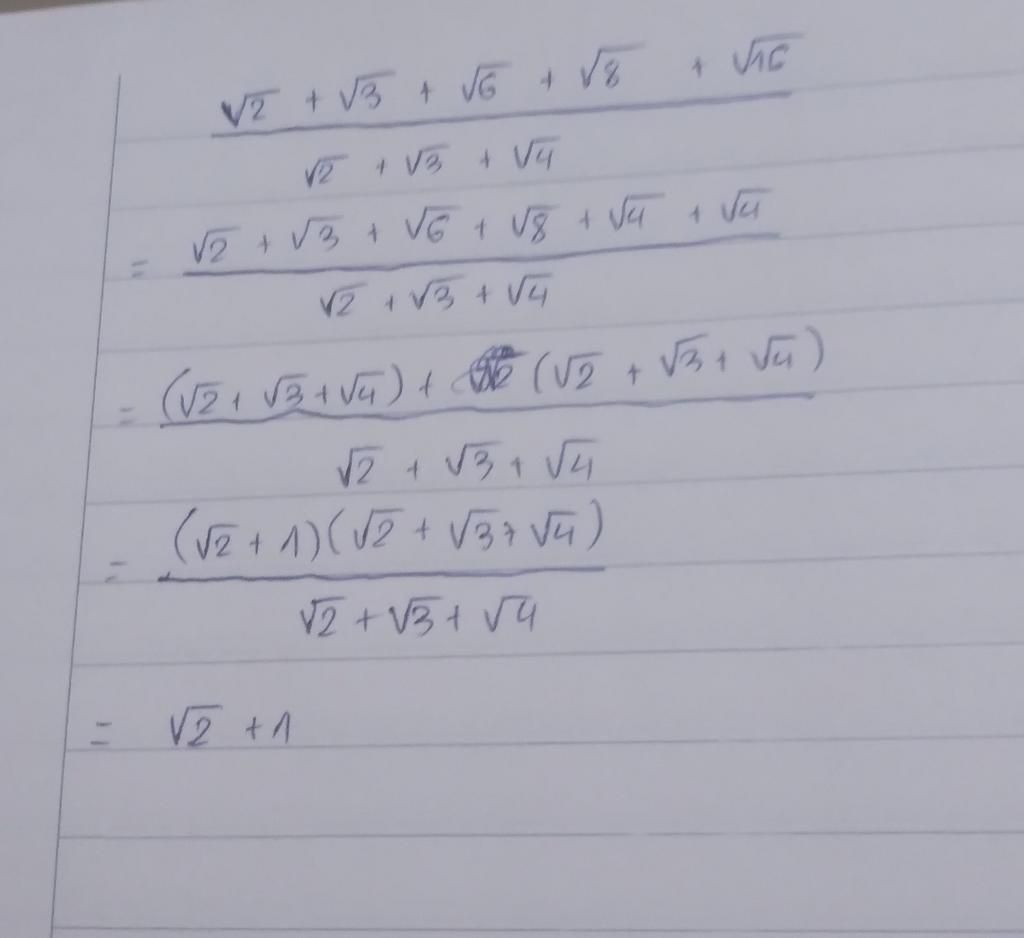 √2 + √3 + √6 + √8 + √16
√2 + √3 + √4
= √2 + √3 + √6 + √8 + √4 + √4
√2 + √3 + √4
= (√2 + √3 + √4) + (√2 + √3 + √4)
√2 + √3 + √4
= (√2 + 1)(√2 + √3 + √4)
√2 + √3 + √4
= √2 + 1